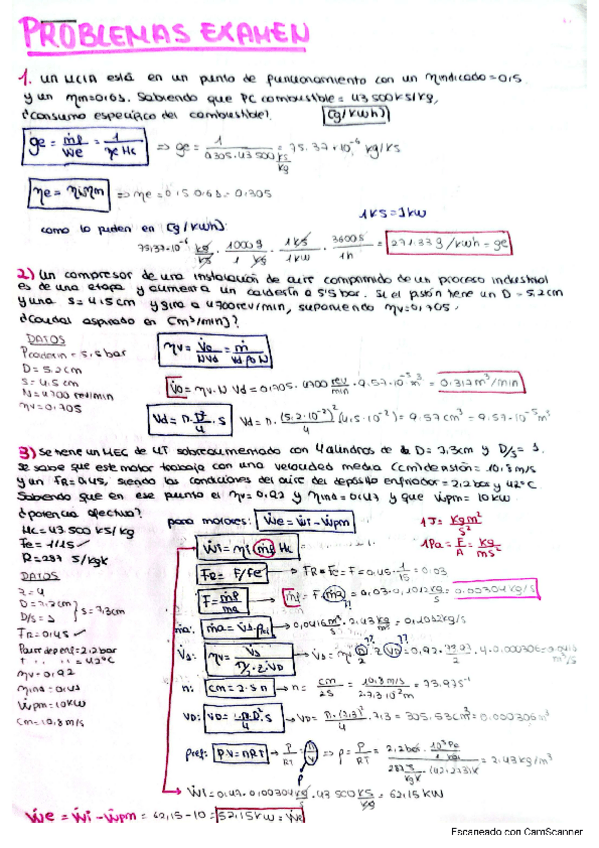 PROBLEMAS EXAMEN
1. un MCIA está en un punto de funcionamiento con un ηindicado=0.5
y un ηm=0.63. Sabiendo que PC combustible = 43500 kJ/kg,
¿Consumo específico del combustible? [g/kWh]
ge = ṁf/Ẇe = 1/(ηe Hc) ⇒ ge = 1/(0.305·43500 kJ/kg) = 75.37·10⁻⁶ kg/kJ
ηe = ηi·ηm ⇒ ηe = 0.5·0.63 = 0.305
1KJ=1KW
como lo piden en [g/kWh]:
75.37·10⁻⁶ kg/kJ · 1000g/1 kg · 1kJ/1kW · 3600s/1h = 271.33 g/kWh = ge
2) un compresor de una instalación de aire comprimido de un proceso industrial
es de una etapa y aumenta un calderín a 5'5 bar. Si el pistón tiene un D = 5.2cm
y una s = 4.5cm y gira a 4700 rev/min, suponiendo ηv=0.705.
¿Caudal aspirado en [m³/min]?
DATOS
Pcalderin = 5.5 bar
D = 5.2cm
S = 4.5 cm
N = 4700 rev/min
ηv = 0.705
ηv = V̇o/(N Vd) = ṁ/(Vd ρo N)
V̇o = ηv·N·Vd = 0.705·4700 rev/min · 9.57·10⁻⁵ m³ = 0.317 m³/min
Vd = π·D²/4 · S
Vd = π·(5.2·10⁻²)²/4 (4.5·10⁻²) = 9.57cm³ = 9.57·10⁻⁵m³
3) Se tiene un MEC de 4T sobrealimentado con 4 cilindros de D= 7.3cm y D/S = 1.
Se sabe que este motor trabaja con una velocidad media (cm) de = 10.8 m/s
y un FR=0.45, siendo las condiciones del aire del depósito enfriador = 2.2 bar y 42°C
Sabiendo que en ese punto el ηv=0.92 y ηind=0.47 y que Ẇpm = 10kW
¿potencia efectiva?
Hc = 43500 kJ/kg
Fe = 1/15
R = 287 J/kgK
DATOS
z = 4
D = 7.3cm
D/S = 1
S = 7.3cm
FR = 0.45
Paire depenf = 2.2bar
" " " = 42°C
ηv = 0.92
Ẇpm = 10kW
Cm = 10.8 m/s
para motores: Ẇe = Ẇi - Ẇpm
1J = Kg m²/s²
1Pa = F/A = kg/ms²
Ẇi = ηi ṁf Hc
FR = F/Fe → FR·Fe = F = 0.45·1/15 = 0.03
F = ṁf/ṁa → ṁf = F·ṁa = 0.03·0.1012 kg/s = 0.00304 kg/s
ṁa: ṁa = V̇s·ρref
V̇s: ηv = V̇s/(n/2·z·VD)
n: cm = 2·s·n → n = cm/2s = 10.8 m/s / 2·7.3·10⁻² m = 73.97 s⁻¹
VD: VD = π·D²/4·S → VD = π·(7.3)²/4 · 7.3 = 305.53cm³ = 0.000306m³
ρref: P·V = nRT → P/RT = n/V ⇒ ρ = P/RT = 2.43 kg/m³
Ẇi = 0.47·0.00304 kg/s · 43500 kJ/kg = 62.15 kW
Ẇe = Ẇi - Ẇpm = 62.15 - 10 = 52.15kW = Ẇe
Escaneado con CamScanner